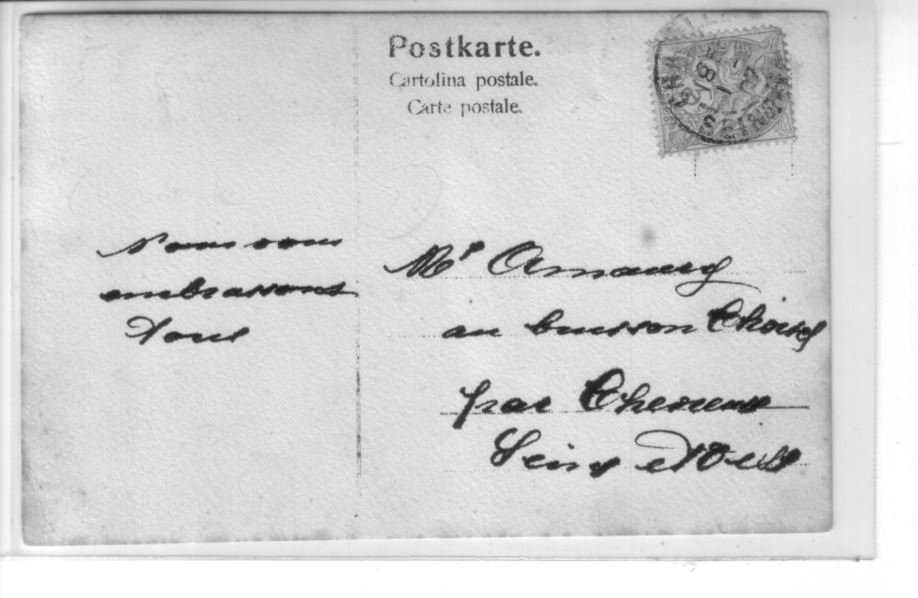 Postkarte.
Cartolina postale.
Carte postale.
Nous vous
embrassons
Tous
Mr Amaury
au buisson Choisel
par Chevreuse
Seine et Oise